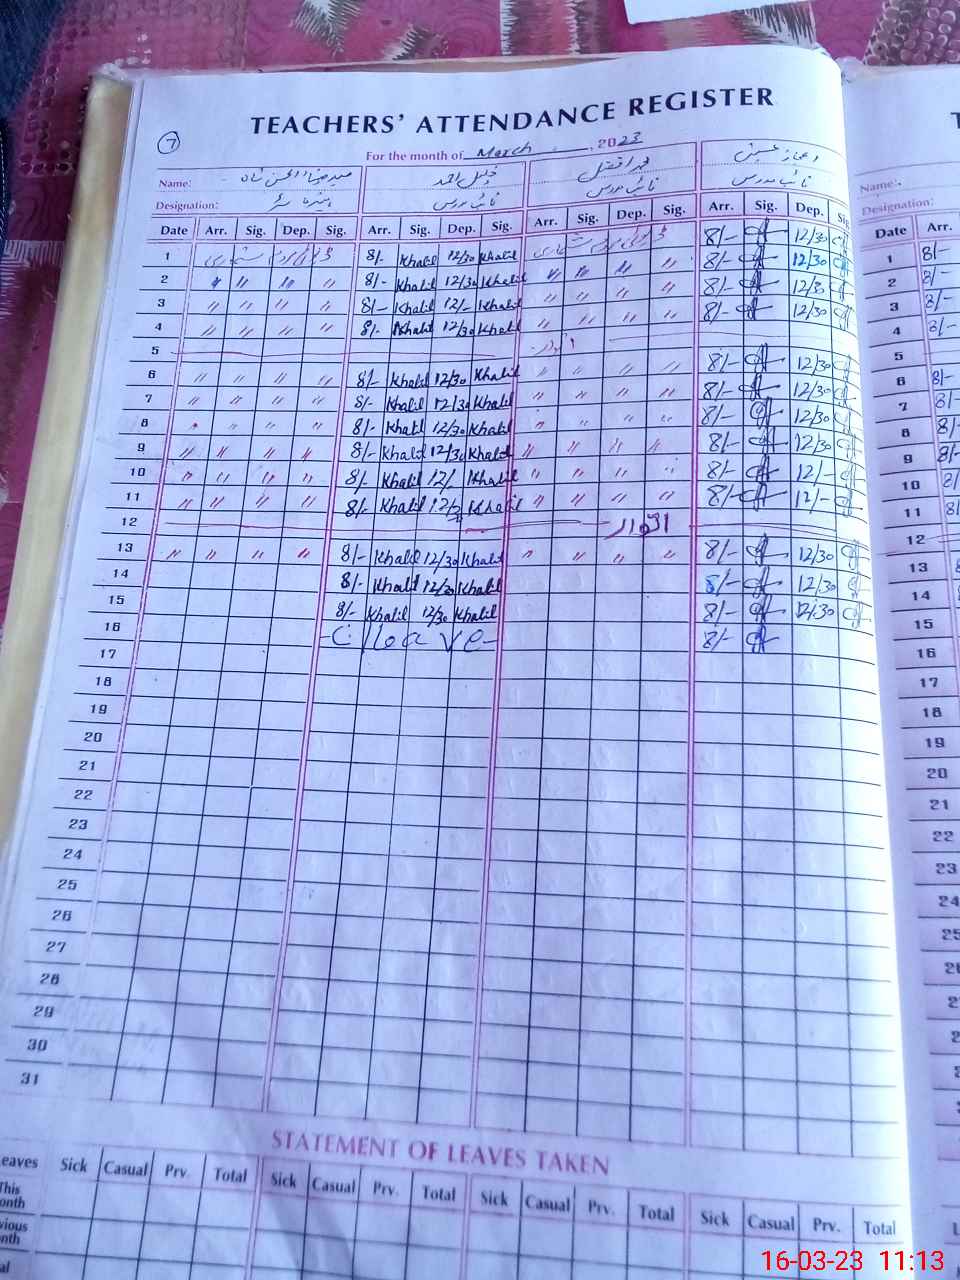 TEACHERS' ATTENDANCE REGISTER
7
For the month of March , 2023
Name: خلیل احمد محمد افضل اعجاز حسین
Designation: نائب مدرس نائب مدرس نائب مدرس
Date Arr. Sig. Dep. Sig. Arr. Sig. Dep. Sig. Arr. Sig. Dep. Sig. Arr. Sig. Dep. Sig.
1 8/- Khalil 12/30 Khalil 8/- 12/30
2 " " " " 8/- Khalil 12/30 Khalil " " " " 8/- 12/30
3 " " " " 8/- Khalil 12/- Khalil " " " " 8/- 12/30
4 " " " " 8/- Khalil 12/30 Khalil " " " " 8/- 12/30
5 اتوار
6 " " " " 8/- Khalil 12/30 Khalil " " " " 8/- 12/30
7 " " " " 8/- Khalil 12/30 Khalil " " " " 8/- 12/30
8 " " " " 8/- Khalil 12/30 Khalil " " " " 8/- 12/30
9 " " " " 8/- Khalil 12/30 Khalil " " " " 8/- 12/30
10 " " " " 8/- Khalil 12/- Khalil " " " " 8/- 12/-
11 " " " " 8/- Khalil Khalil " " " " 8/- 12/-
12 اتوار
13 " " " " 8/- Khalil 12/30 Khalil " " " " 8/- 12/30
14 8/- Khalil 12/30 Khalil 8/- 12/30
15 8/- Khalil 12/30 Khalil 8/- 12/30
16 C/leave 8/-
17
18
19
20
21
22
23
24
25
26
27
28
29
30
31
STATEMENT OF LEAVES TAKEN
eaves Sick Casual Prv. Total Sick Casual Prv. Total Sick Casual Prv. Total Sick Casual Prv. Total
This
onth
vious
nth
al
Name:
Designation:
Date Arr.
1 8/-
2 8/-
3 8/-
4 8/-
5
6 8/-
7 8/-
8 8/-
9 8/-
10
11
12
13
14
15
16
17
18
19
20
21
22
23
24
25
16-03-23 11:13